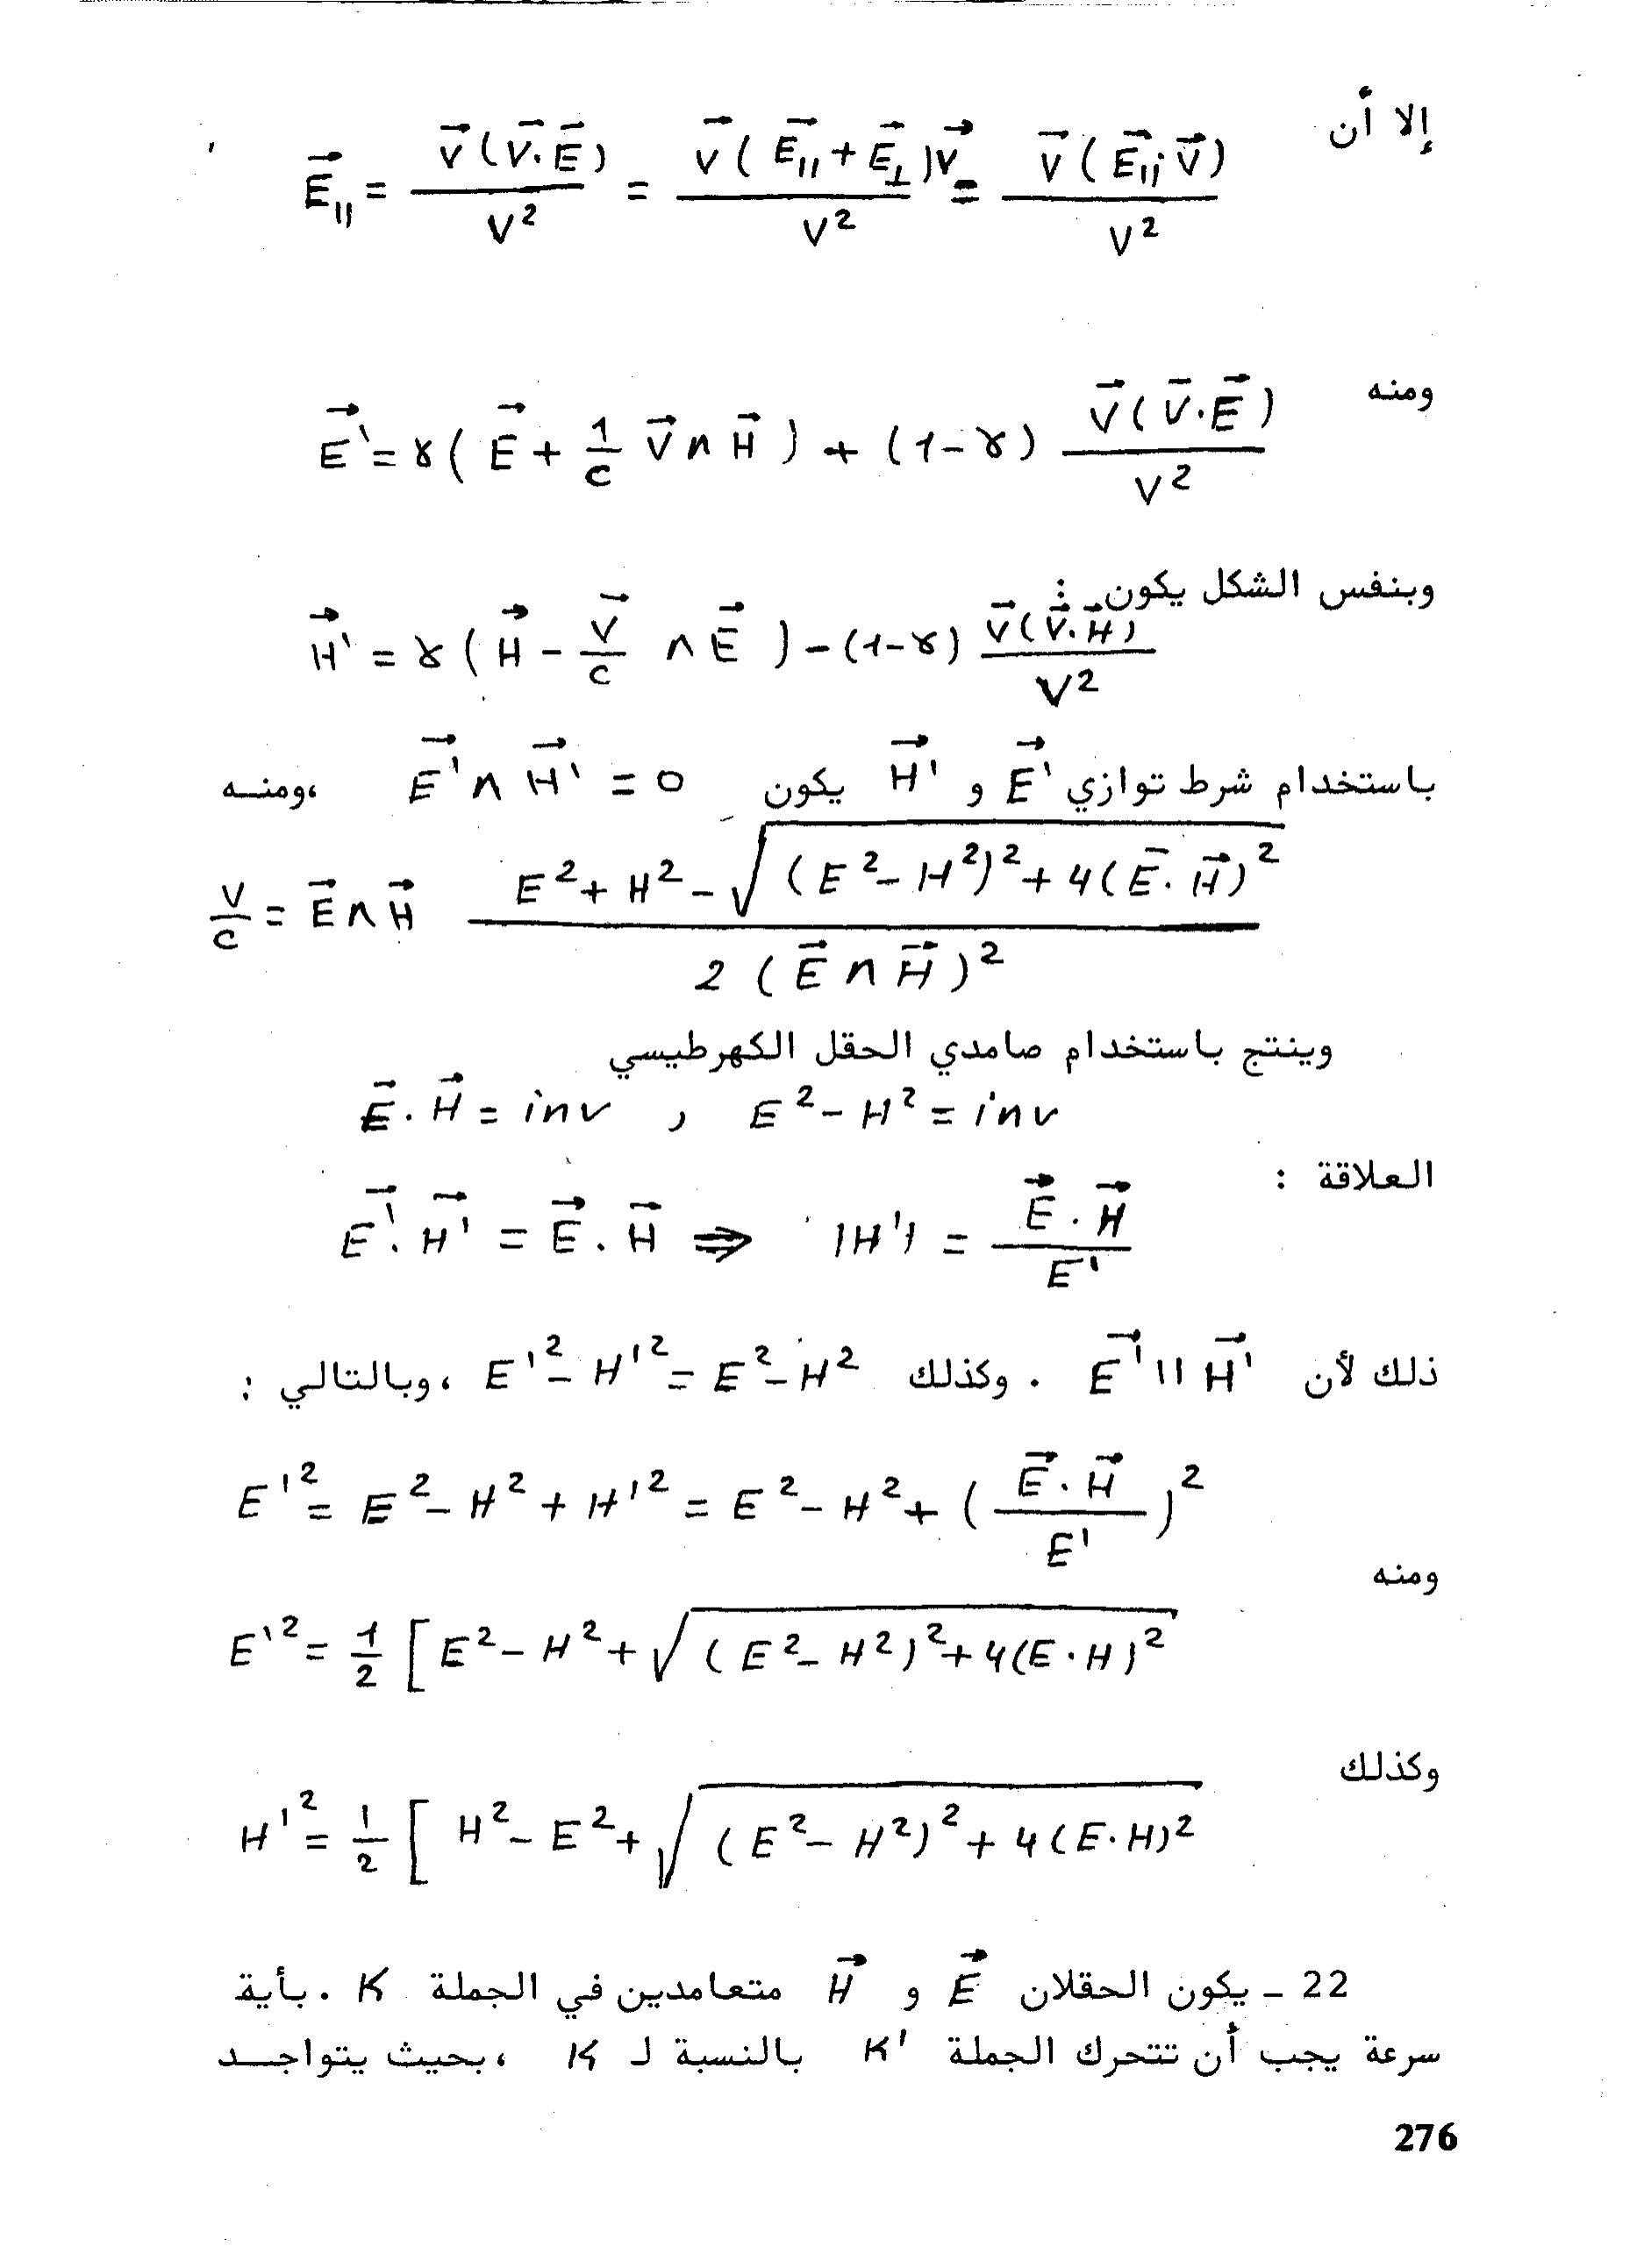 إلا أن
E⃗_{||} = \frac{v⃗(v⃗.E⃗)}{v^2} = \frac{v⃗(E⃗_{||} + E⃗_⊥)v⃗}{v^2} = \frac{v⃗(E⃗_{||}; v⃗)}{v^2}
ومنه
E⃗' = γ( E⃗ + \frac{1}{c} v⃗ ∧ H⃗ ) + (1-γ) \frac{v⃗(v⃗.E⃗)}{v^2}
وبنفس الشكل يكون :
H⃗' = γ( H⃗ - \frac{v⃗}{c} ∧ E⃗ ) - (1-γ) \frac{v⃗(v⃗.H⃗)}{v^2}
باستخدام شرط توازي E⃗' و H⃗' يكون E⃗' ∧ H⃗' = 0 ،ومنه
\frac{v}{c} = E⃗ ∧ H⃗ \frac{E^2 + H^2 - \sqrt{(E^2 - H^2)^2 + 4(E⃗. H⃗)^2}}{2 (E⃗ ∧ H⃗)^2}
وينتج باستخدام صامدي الحقل الكهرطيسي
E⃗. H⃗ = inv , E^2 - H^2 = inv
العلاقة :
E⃗'. H⃗' = E⃗ . H⃗ ⇒ |H'| = \frac{E⃗ . H⃗}{E'}
ذلك لأن E⃗' || H⃗' . وكذلك E'^2 - H'^2 = E^2 - H^2 ،وبالتالي :
E'^2 = E^2 - H^2 + H'^2 = E^2 - H^2 + ( \frac{E⃗. H⃗}{E'} )^2
ومنه
E'^2 = \frac{1}{2} [ E^2 - H^2 + \sqrt{(E^2 - H^2)^2 + 4(E.H)^2}
وكذلك
H'^2 = \frac{1}{2} [ H^2 - E^2 + \sqrt{(E^2 - H^2)^2 + 4(E.H)^2}
22 - يكون الحقلان E⃗ و H⃗ متعامدين في الجملة K . بأية
سرعة يجب أن تتحرك الجملة K' بالنسبة لـ K ،بحيث يتواجد
276